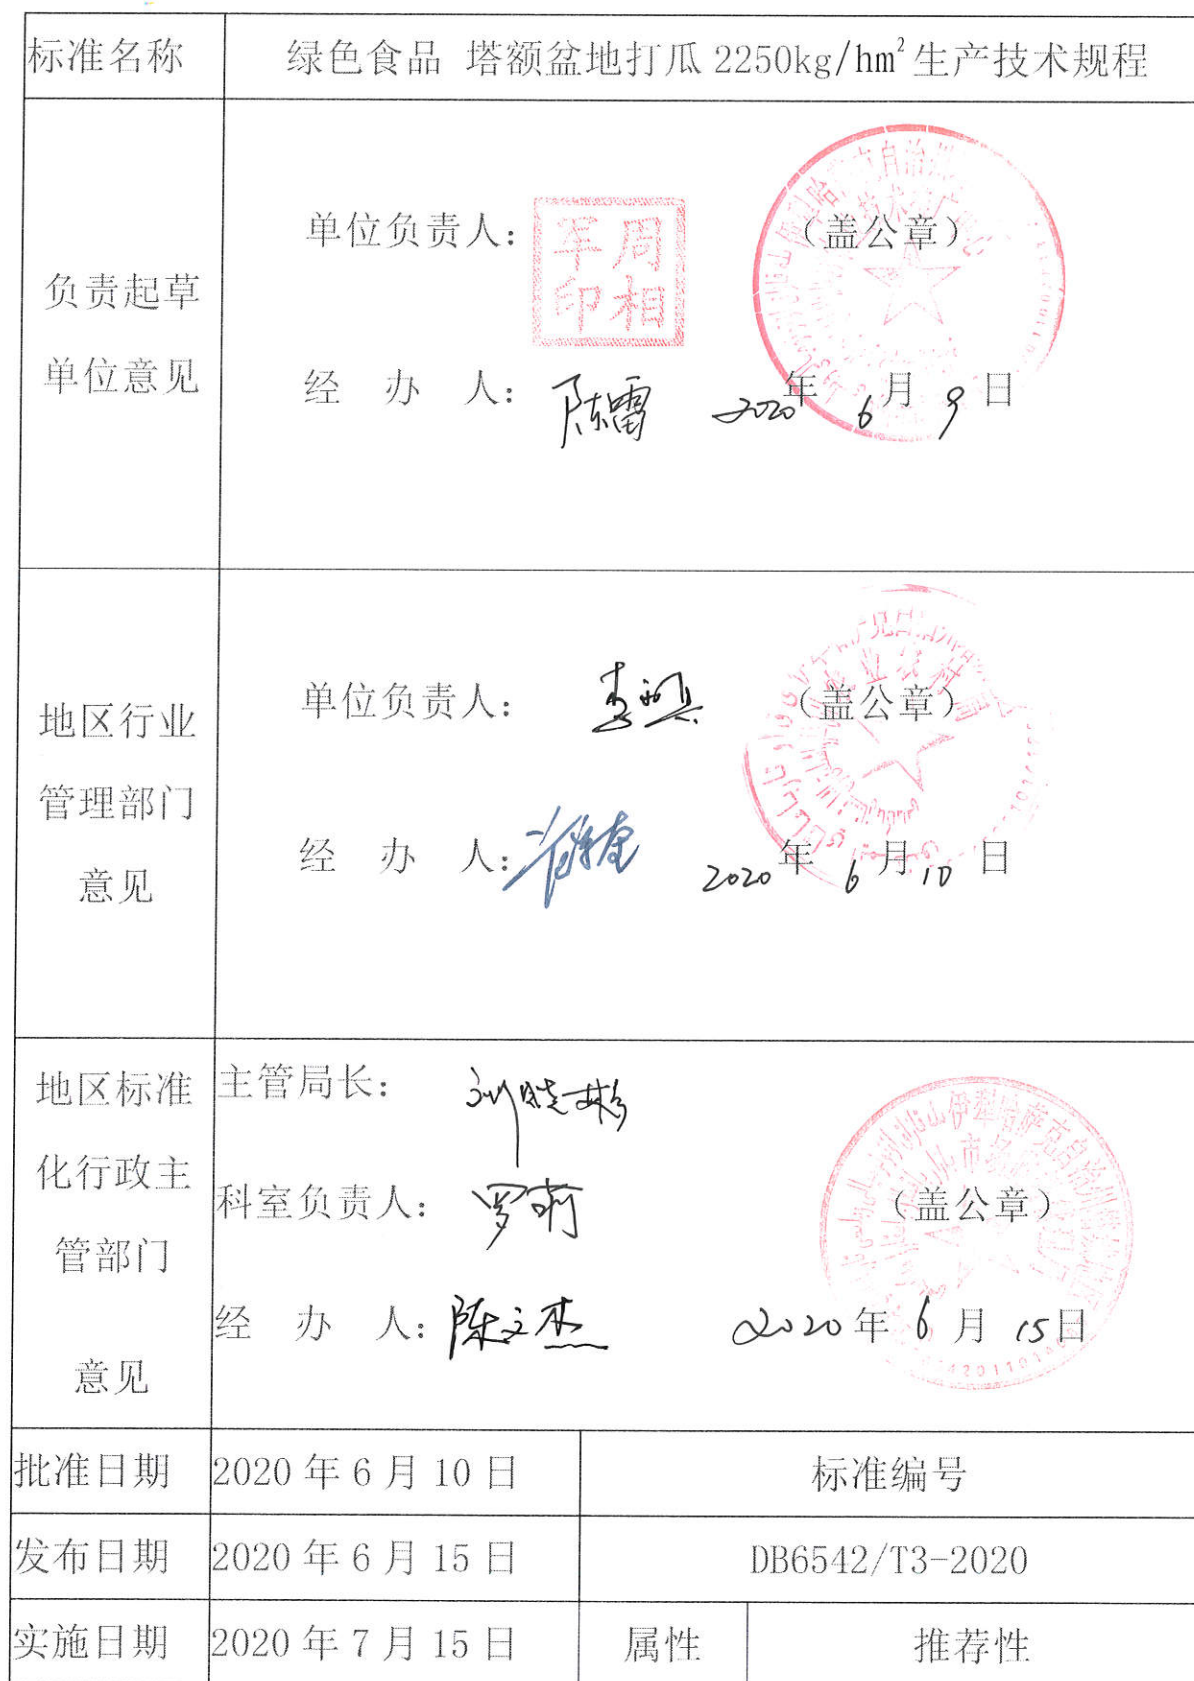 标准名称
绿色食品 塔额盆地打瓜 2250kg/hm²生产技术规程
负责起草
单位意见
单位负责人：
周相
军印
（盖公章）
经 办 人：
陈雷
2020年6月9日
地区行业
管理部门
意见
单位负责人：
（盖公章）
经 办 人：
2020年6月10日
地区标准
化行政主
管部门
意见
主管局长：
刘晓彬
科室负责人：
罗莉
（盖公章）
经 办 人：
陈文杰
2020年6月15日
批准日期
2020 年 6 月 10 日
标准编号
发布日期
2020 年 6 月 15 日
DB6542/T3-2020
实施日期
2020 年 7 月 15 日
属性
推荐性